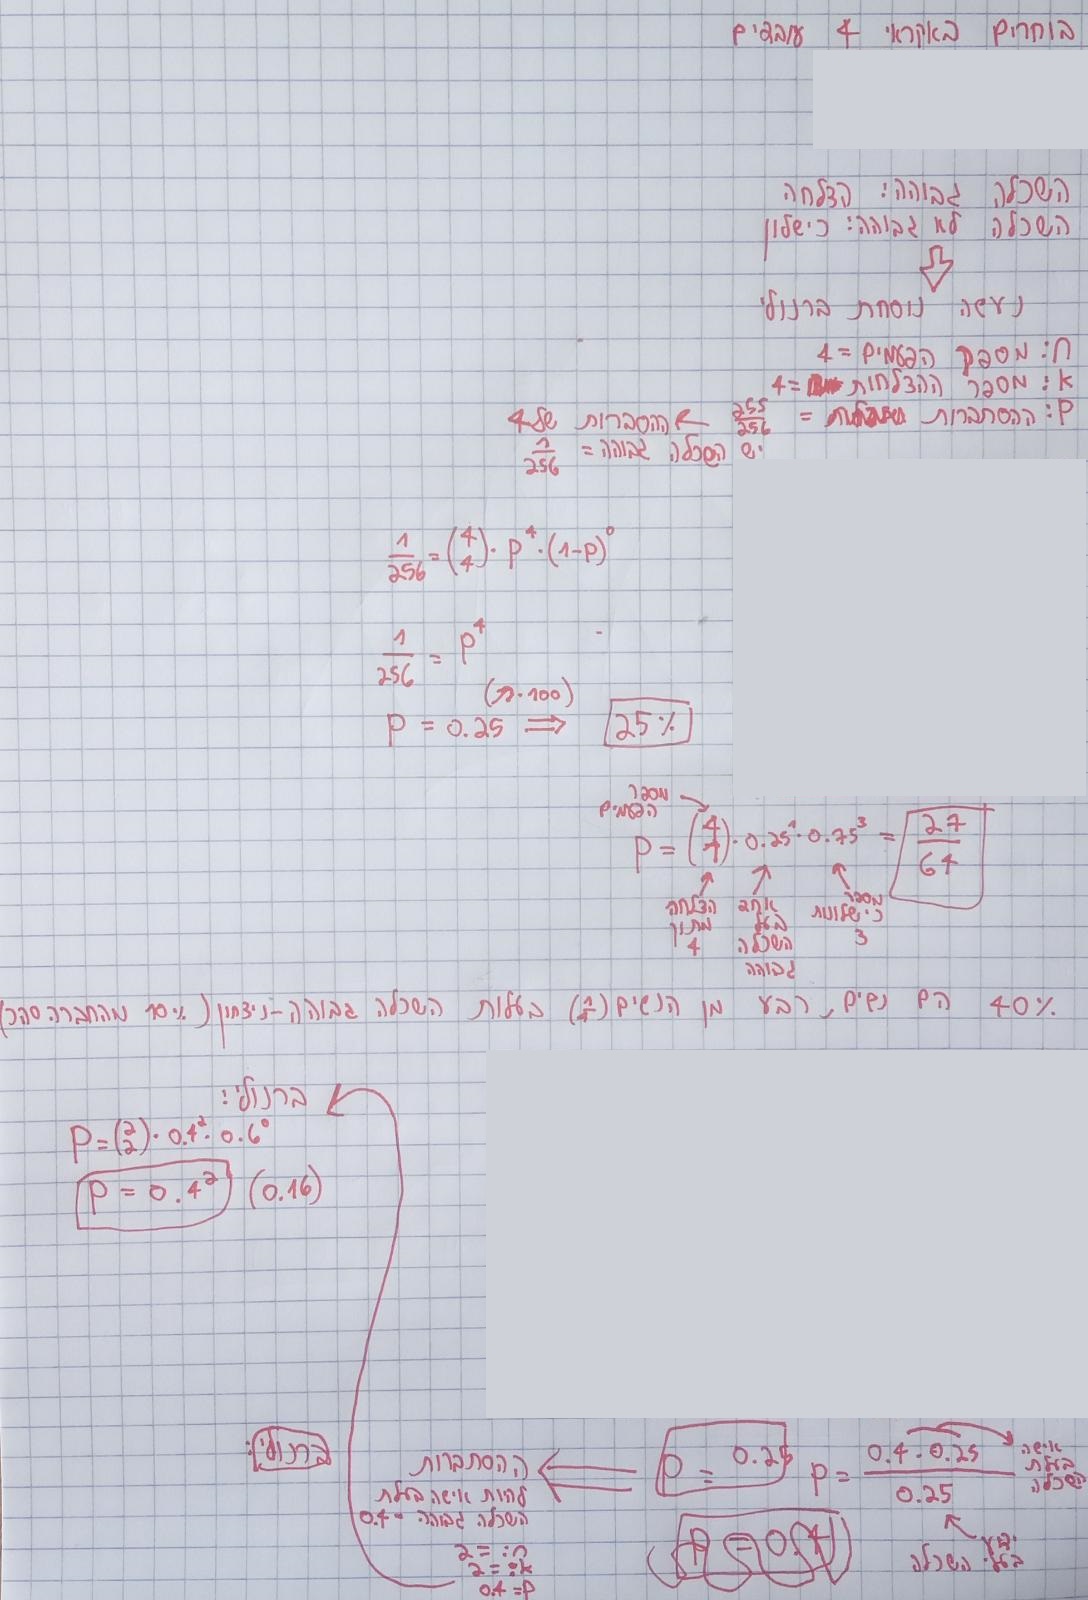 בוחרים באקראי 4 עובדים
השכלה גבוהה: הצלחה
השכלה לא גבוהה: כישלון
נעשה נוסחת ברנולי
n: מספר הפעמים = 4
א: מספר ההצלחות = 4
P: ההסתברות = 255/256 ← ההסברות של 4
יש השכלה גבוהה = 1/256
1/256 = (4 4) · P^4 · (1-P)^0
1/256 = P^4
(ת·100)
P = 0.25 ⟹ 25%
מספר
הפעמים
P = (4 1) · 0.25^1 · 0.75^3 = 27/64
הצלחה
מתוך
4
אחד
בעל
השכלה
גבוהה
מספר
כישלונות
3
40% הם נשים, רבע מן הנשים (1/4) בעלות השכלה גבוהה - ניצחון (10% מהחברה סהכ)
ברנולי:
P = (2 2) · 0.4^2 · 0.6^0
P = 0.4^2 (0.16)
P = 0.4 · 0.25 / 0.25
אישה
בעלת
השכלה
בעלי השכלה
P = 0.25
P = 0.4
ההסתברות
להיות אישה בעלת
השכלה גבוהה - 0.4
n: = 2
א: = 2
P = 0.4
ברנולי: